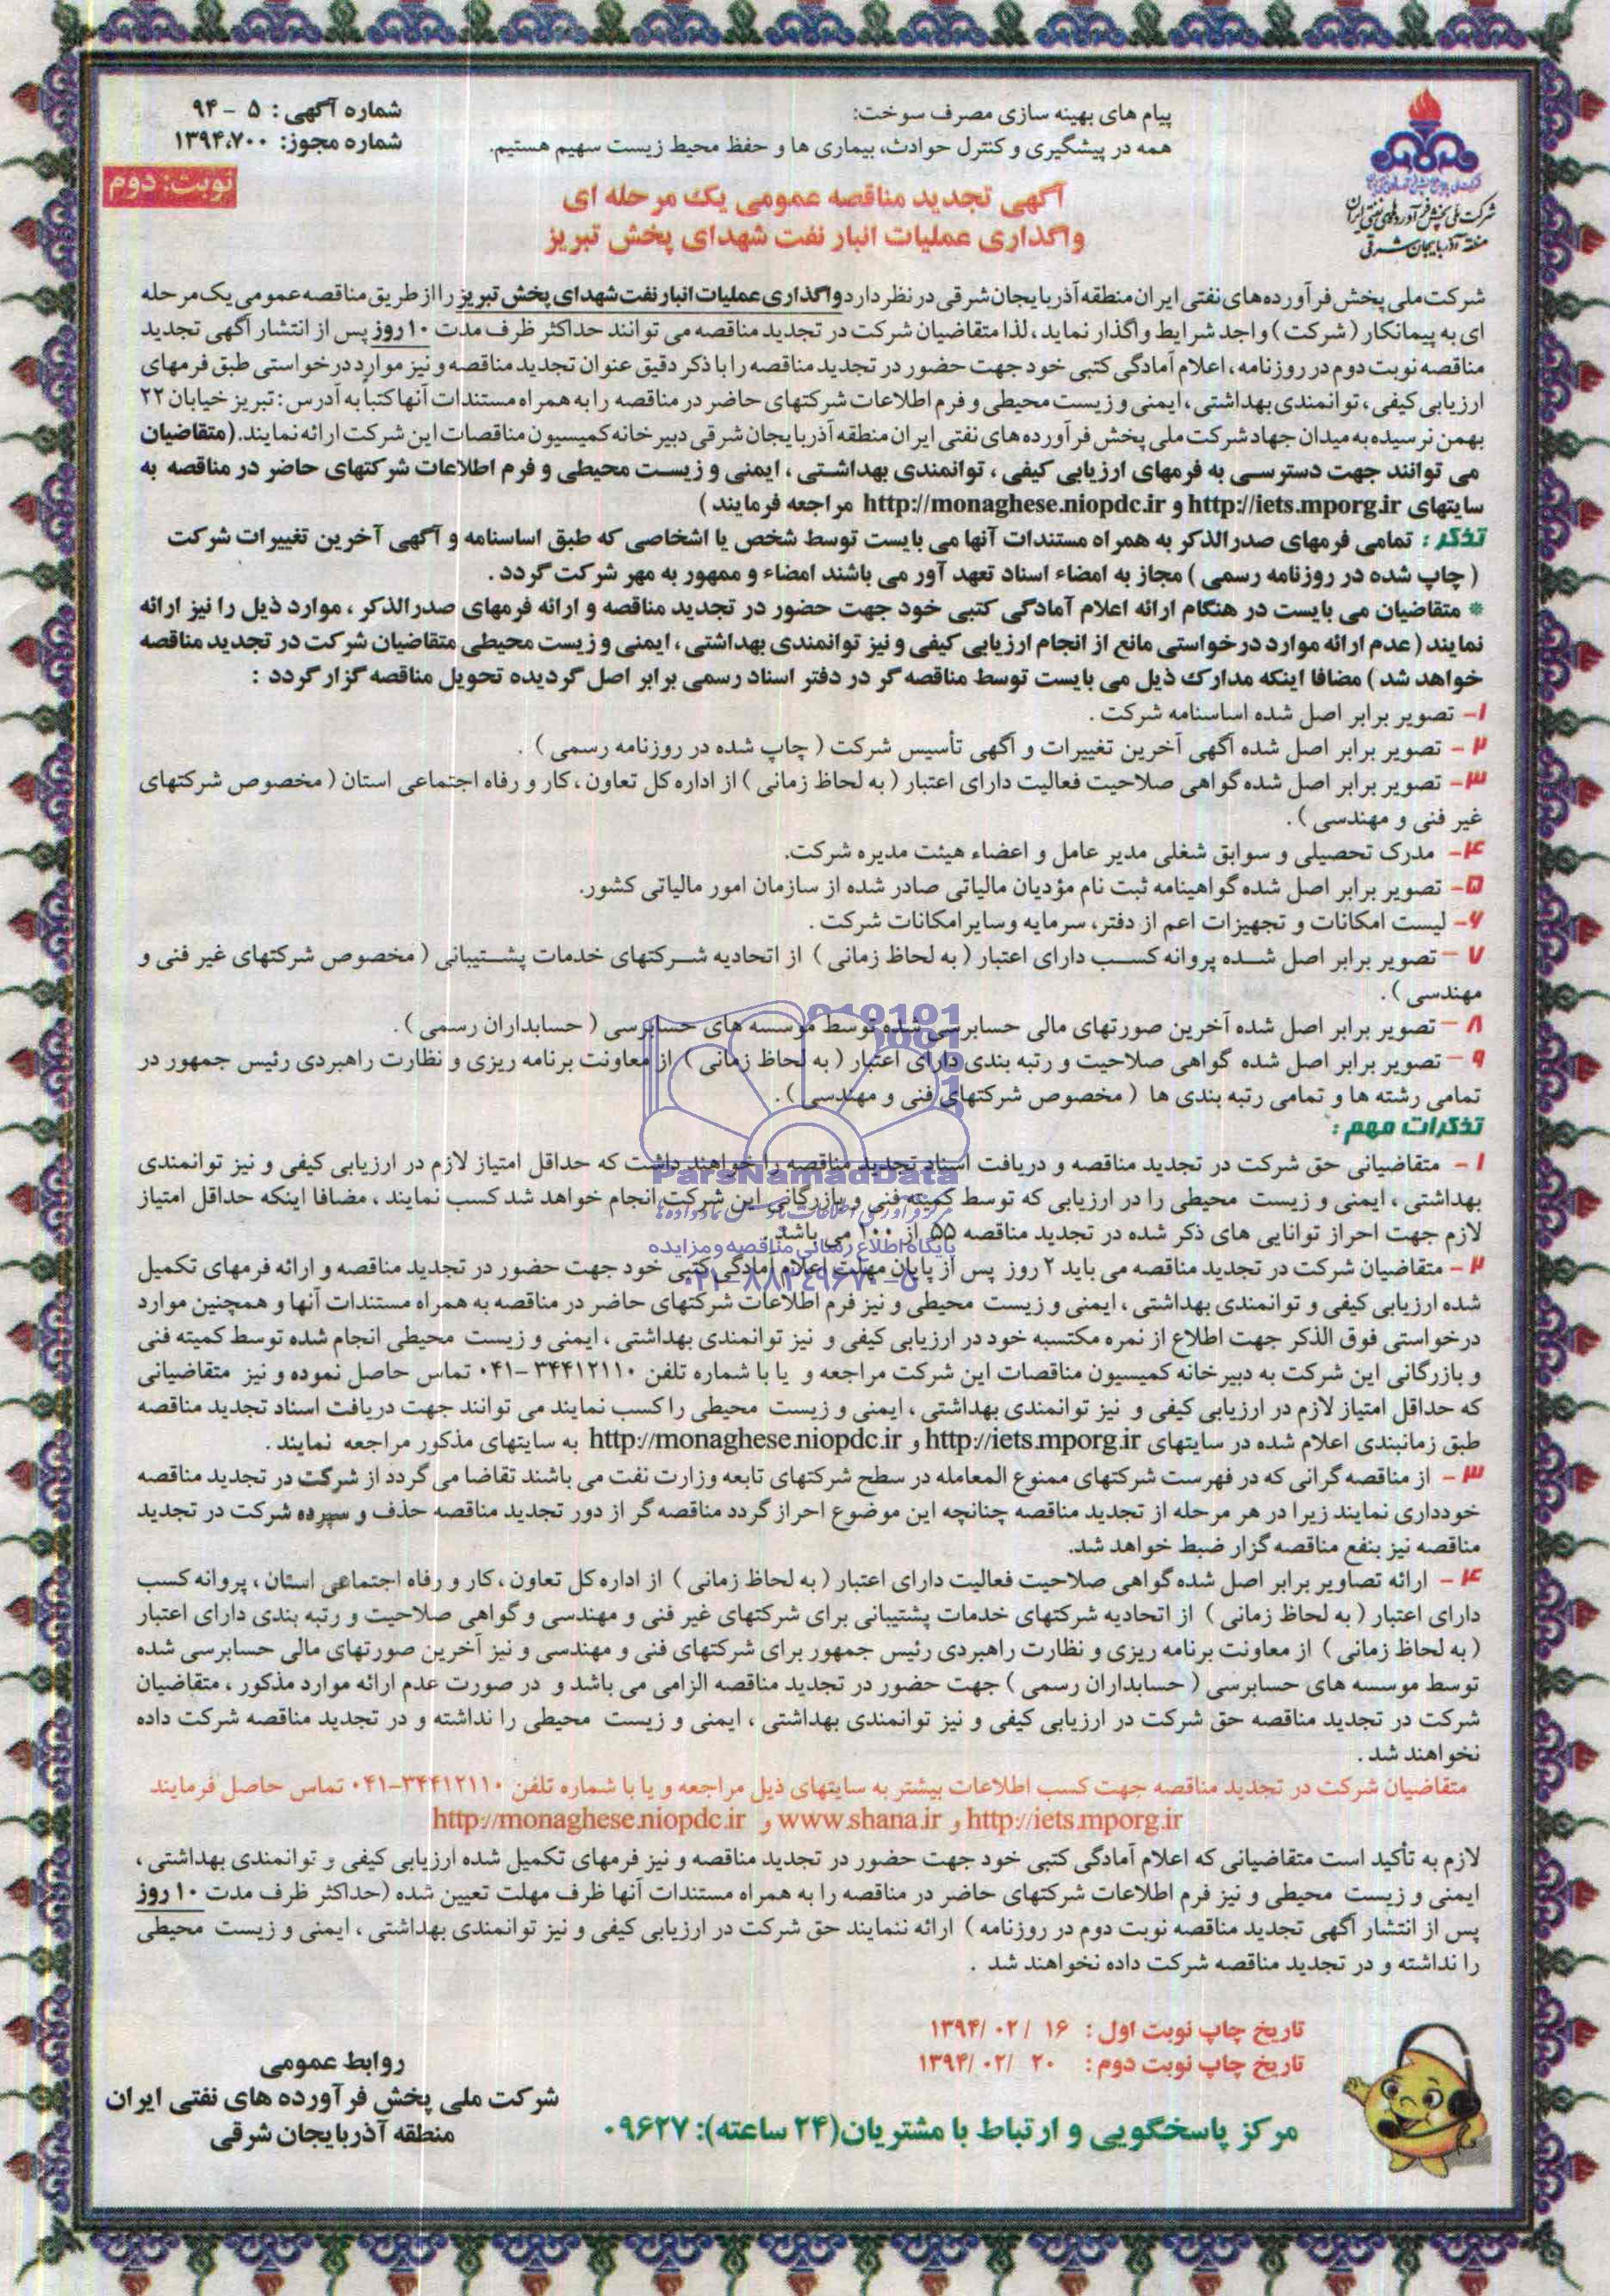 پیام های بهینه سازی مصرف سوخت:
همه در پیشگیری و کنترل حوادث، بیماری ها و حفظ محیط زیست سهیم هستیم.
شماره آگهی: ۵ - ۹۴
شماره مجوز: ۱۳۹۴،۷۰۰
نوبت: دوم
شرکت ملی پخش فرآورده های نفتی ایران
منطقه آذربایجان شرقی
آگهی تجدید مناقصه عمومی یک مرحله ای
واگذاری عملیات انبار نفت شهدای پخش تبریز
شرکت ملی پخش فرآورده های نفتی ایران منطقه آذربایجان شرقی در نظر دارد واگذاری عملیات انبار نفت شهدای پخش تبریز را از طریق مناقصه عمومی یک مرحله
ای به پیمانکار (شرکت) واجد شرایط واگذار نماید، لذا متقاضیان شرکت در تجدید مناقصه می توانند حداکثر ظرف مدت ۱۰ روز پس از انتشار آگهی تجدید
مناقصه نوبت دوم در روزنامه، اعلام آمادگی کتبی خود جهت حضور در تجدید مناقصه را با ذکر دقیق عنوان تجدید مناقصه و نیز موارد درخواستی طبق فرمهای
ارزیابی کیفی، توانمندی بهداشتی، ایمنی و زیست محیطی و فرم اطلاعات شرکتهای حاضر در مناقصه را به همراه مستندات آنها کتباً به آدرس: تبریز خیابان ۲۲
بهمن نرسیده به میدان جهاد شرکت ملی پخش فرآورده های نفتی ایران منطقه آذربایجان شرقی دبیرخانه کمیسیون مناقصات این شرکت ارائه نمایند. (متقاضیان
می توانند جهت دسترسی به فرمهای ارزیابی کیفی، توانمندی بهداشتی، ایمنی و زیست محیطی و فرم اطلاعات شرکتهای حاضر در مناقصه به
سایتهای http://iets.mporg.ir و http://monaghese.niopdc.ir مراجعه فرمایند)
تذکر: تمامی فرمهای صدرالذکر به همراه مستندات آنها می بایست توسط شخص یا اشخاصی که طبق اساسنامه و آگهی آخرین تغییرات شرکت
(چاپ شده در روزنامه رسمی) مجاز به امضاء اسناد تعهد آور می باشند امضاء و ممهور به مهر شرکت گردد.
* متقاضیان می بایست در هنگام ارائه اعلام آمادگی کتبی خود جهت حضور در تجدید مناقصه و ارائه فرمهای صدرالذکر، موارد ذیل را نیز ارائه
نمایند (عدم ارائه موارد درخواستی مانع از انجام ارزیابی کیفی و نیز توانمندی بهداشتی، ایمنی و زیست محیطی متقاضیان شرکت در تجدید مناقصه
خواهد شد) مضافا اینکه مدارک ذیل می بایست توسط مناقصه گر در دفتر اسناد رسمی برابر اصل گردیده تحویل مناقصه گزار گردد:
۱- تصویر برابر اصل شده اساسنامه شرکت.
۲- تصویر برابر اصل شده آگهی آخرین تغییرات و آگهی تأسیس شرکت (چاپ شده در روزنامه رسمی).
۳- تصویر برابر اصل شده گواهی صلاحیت فعالیت دارای اعتبار (به لحاظ زمانی) از اداره کل تعاون، کار و رفاه اجتماعی استان (مخصوص شرکتهای
غیر فنی و مهندسی).
۴- مدرک تحصیلی و سوابق شغلی مدیر عامل و اعضاء هیئت مدیره شرکت.
۵- تصویر برابر اصل شده گواهینامه ثبت نام مؤدیان مالیاتی صادر شده از سازمان امور مالیاتی کشور.
۶- لیست امکانات و تجهیزات اعم از دفتر، سرمایه وسایر امکانات شرکت.
۷- تصویر برابر اصل شده پروانه کسب دارای اعتبار (به لحاظ زمانی) از اتحادیه شرکتهای خدمات پشتیبانی (مخصوص شرکتهای غیر فنی و
مهندسی).
۸- تصویر برابر اصل شده آخرین صورتهای مالی حسابرسی شده توسط موسسه های حسابرسی (حسابداران رسمی).
۹- تصویر برابر اصل شده گواهی صلاحیت و رتبه بندی دارای اعتبار (به لحاظ زمانی) از معاونت برنامه ریزی و نظارت راهبردی رئیس جمهور در
تمامی رشته ها و تمامی رتبه بندی ها (مخصوص شرکتهای فنی و مهندسی).
تذکرات مهم:
۱- متقاضیانی حق شرکت در تجدید مناقصه و دریافت اسناد تجدید مناقصه را خواهند داشت که حداقل امتیاز لازم در ارزیابی کیفی و نیز توانمندی
بهداشتی، ایمنی و زیست محیطی را در ارزیابی که توسط کمیته فنی و بازرگانی این شرکت انجام خواهد شد کسب نمایند، مضافا اینکه حداقل امتیاز
لازم جهت احراز توانایی های ذکر شده در تجدید مناقصه ۵۵ از ۱۰۰ می باشد.
۲- متقاضیان شرکت در تجدید مناقصه می باید ۲ روز پس از پایان مهلت اعلام آمادگی کتبی خود جهت حضور در تجدید مناقصه و ارائه فرمهای تکمیل
شده ارزیابی کیفی و توانمندی بهداشتی، ایمنی و زیست محیطی و نیز فرم اطلاعات شرکتهای حاضر در مناقصه به همراه مستندات آنها و همچنین موارد
درخواستی فوق الذکر جهت اطلاع از نمره مکتسبه خود در ارزیابی کیفی و نیز توانمندی بهداشتی، ایمنی و زیست محیطی انجام شده توسط کمیته فنی
و بازرگانی این شرکت به دبیرخانه کمیسیون مناقصات این شرکت مراجعه و یا با شماره تلفن ۳۴۴۱۲۱۱۰-۰۴۱ تماس حاصل نموده و نیز متقاضیانی
که حداقل امتیاز لازم در ارزیابی کیفی و نیز توانمندی بهداشتی، ایمنی و زیست محیطی را کسب نمایند می توانند جهت دریافت اسناد تجدید مناقصه
طبق زمانبندی اعلام شده در سایتهای http://iets.mporg.ir و http://monaghese.niopdc.ir به سایتهای مذکور مراجعه نمایند.
۳- از مناقصه گرانی که در فهرست شرکتهای ممنوع المعامله در سطح شرکتهای تابعه وزارت نفت می باشند تقاضا می گردد از شرکت در تجدید مناقصه
خودداری نمایند زیرا در هر مرحله از تجدید مناقصه چنانچه این موضوع احراز گردد مناقصه گر از دور تجدید مناقصه حذف و سپرده شرکت در تجدید
مناقصه نیز بنفع مناقصه گزار ضبط خواهد شد.
۴- ارائه تصاویر برابر اصل شده گواهی صلاحیت فعالیت دارای اعتبار (به لحاظ زمانی) از اداره کل تعاون، کار و رفاه اجتماعی استان، پروانه کسب
دارای اعتبار (به لحاظ زمانی) از اتحادیه شرکتهای خدمات پشتیبانی برای شرکتهای غیر فنی و مهندسی و گواهی صلاحیت و رتبه بندی دارای اعتبار
(به لحاظ زمانی) از معاونت برنامه ریزی و نظارت راهبردی رئیس جمهور برای شرکتهای فنی و مهندسی و نیز آخرین صورتهای مالی حسابرسی شده
توسط موسسه های حسابرسی (حسابداران رسمی) جهت حضور در تجدید مناقصه الزامی می باشد و در صورت عدم ارائه موارد مذکور، متقاضیان
شرکت در تجدید مناقصه حق شرکت در ارزیابی کیفی و نیز توانمندی بهداشتی، ایمنی و زیست محیطی را نداشته و در تجدید مناقصه شرکت داده
نخواهند شد.
متقاضیان شرکت در تجدید مناقصه جهت کسب اطلاعات بیشتر به سایتهای ذیل مراجعه و یا با شماره تلفن ۳۴۴۱۲۱۱۰-۰۴۱ تماس حاصل فرمایند
http://iets.mporg.ir و www.shana.ir و http://monaghese.niopdc.ir
لازم به تأکید است متقاضیانی که اعلام آمادگی کتبی خود جهت حضور در تجدید مناقصه و نیز فرمهای تکمیل شده ارزیابی کیفی و توانمندی بهداشتی،
ایمنی و زیست محیطی و نیز فرم اطلاعات شرکتهای حاضر در مناقصه را به همراه مستندات آنها ظرف مهلت تعیین شده (حداکثر ظرف مدت ۱۰ روز
پس از انتشار آگهی تجدید مناقصه نوبت دوم در روزنامه) ارائه ننمایند حق شرکت در ارزیابی کیفی و نیز توانمندی بهداشتی، ایمنی و زیست محیطی
را نداشته و در تجدید مناقصه شرکت داده نخواهند شد.
تاریخ چاپ نوبت اول: ۱۶ /۰۲ /۱۳۹۴
تاریخ چاپ نوبت دوم: ۲۰ /۰۲ /۱۳۹۴
مرکز پاسخگویی و ارتباط با مشتریان(۲۴ ساعته): ۰۹۶۲۷
روابط عمومی
شرکت ملی پخش فرآورده های نفتی ایران
منطقه آذربایجان شرقی
ParsNamadData
پایگاه اطلاع رسانی مناقصه و مزایده
۰۲۱-۸۸۳۴۹۶۷۰-۵